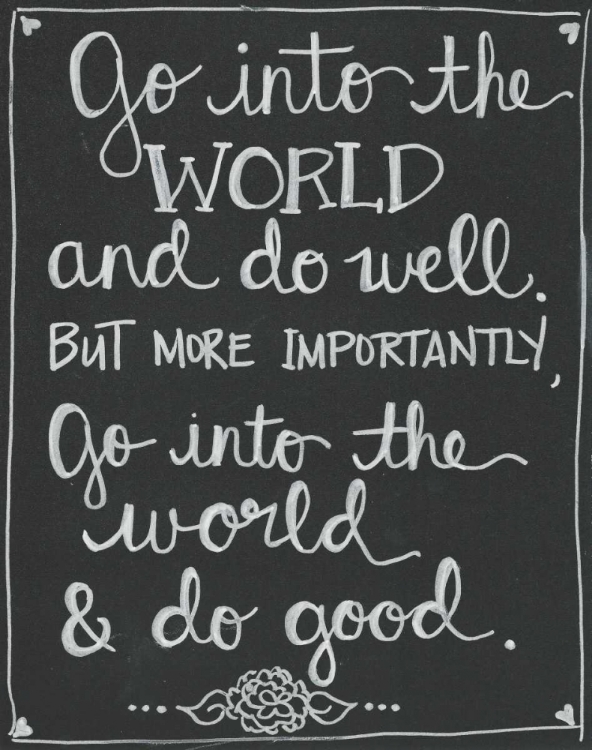 Go into the
WORLD
and do well.
BUT MORE IMPORTANTLY,
Go into the
world
& do good.